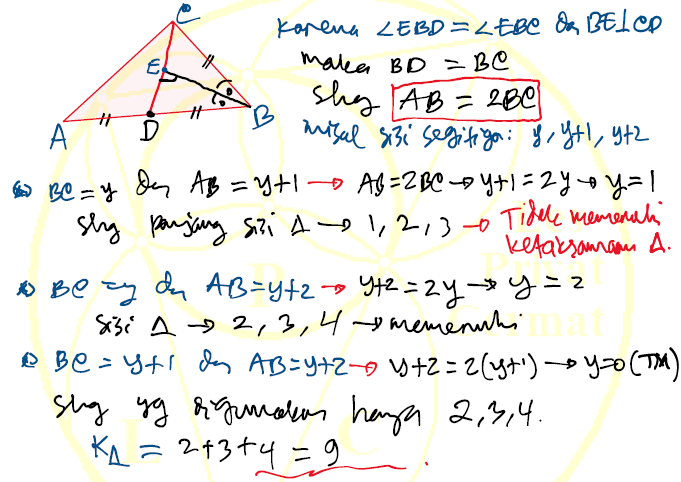 C
E
A
D
B
Karena ∠EBD = ∠EBC dn BE⊥CD
maka BD = BC
shg AB = 2BC
misal sisi segitiga: y, y+1, y+2
BC = y dn AB = y+1 → AB = 2BC → y+1 = 2y → y = 1
shg panjang sisi Δ → 1, 2, 3 → Tidak memenuhi
ketaksamaan Δ.
BC = y dn AB = y+2 → y+2 = 2y → y = 2
sisi Δ → 2, 3, 4 → memenuhi
BC = y+1 dn AB = y+2 → y+2 = 2(y+1) → y=0 (TM)
shg yg digunakan hanya 2,3,4.
KΔ = 2+3+4 = 9